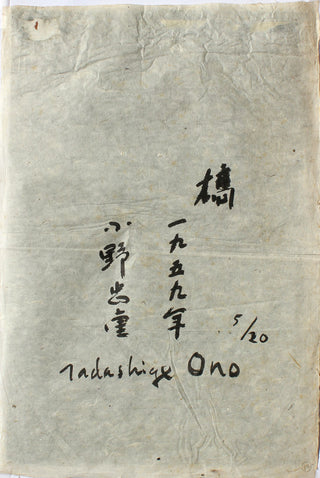 橋
一九五九年
小野忠重
5/20
Tadashige Ono